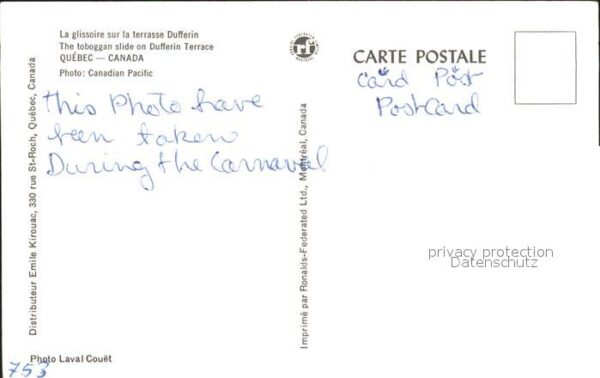 La glissoire sur la terrasse Dufferin
The toboggan slide on Dufferin Terrace
QUÉBEC — CANADA
Photo: Canadian Pacific
This Photo have
been taken
During the Carnaval
Distributeur Emile Kirouac, 330 rue St-Roch, Québec, Canada
Photo Laval Couët
753
Imprimé par Ronalds-Federated Ltd., Montréal, Canada
rf
CARTE POSTALE
Card Post
PostCard
privacy protection
Datenschutz